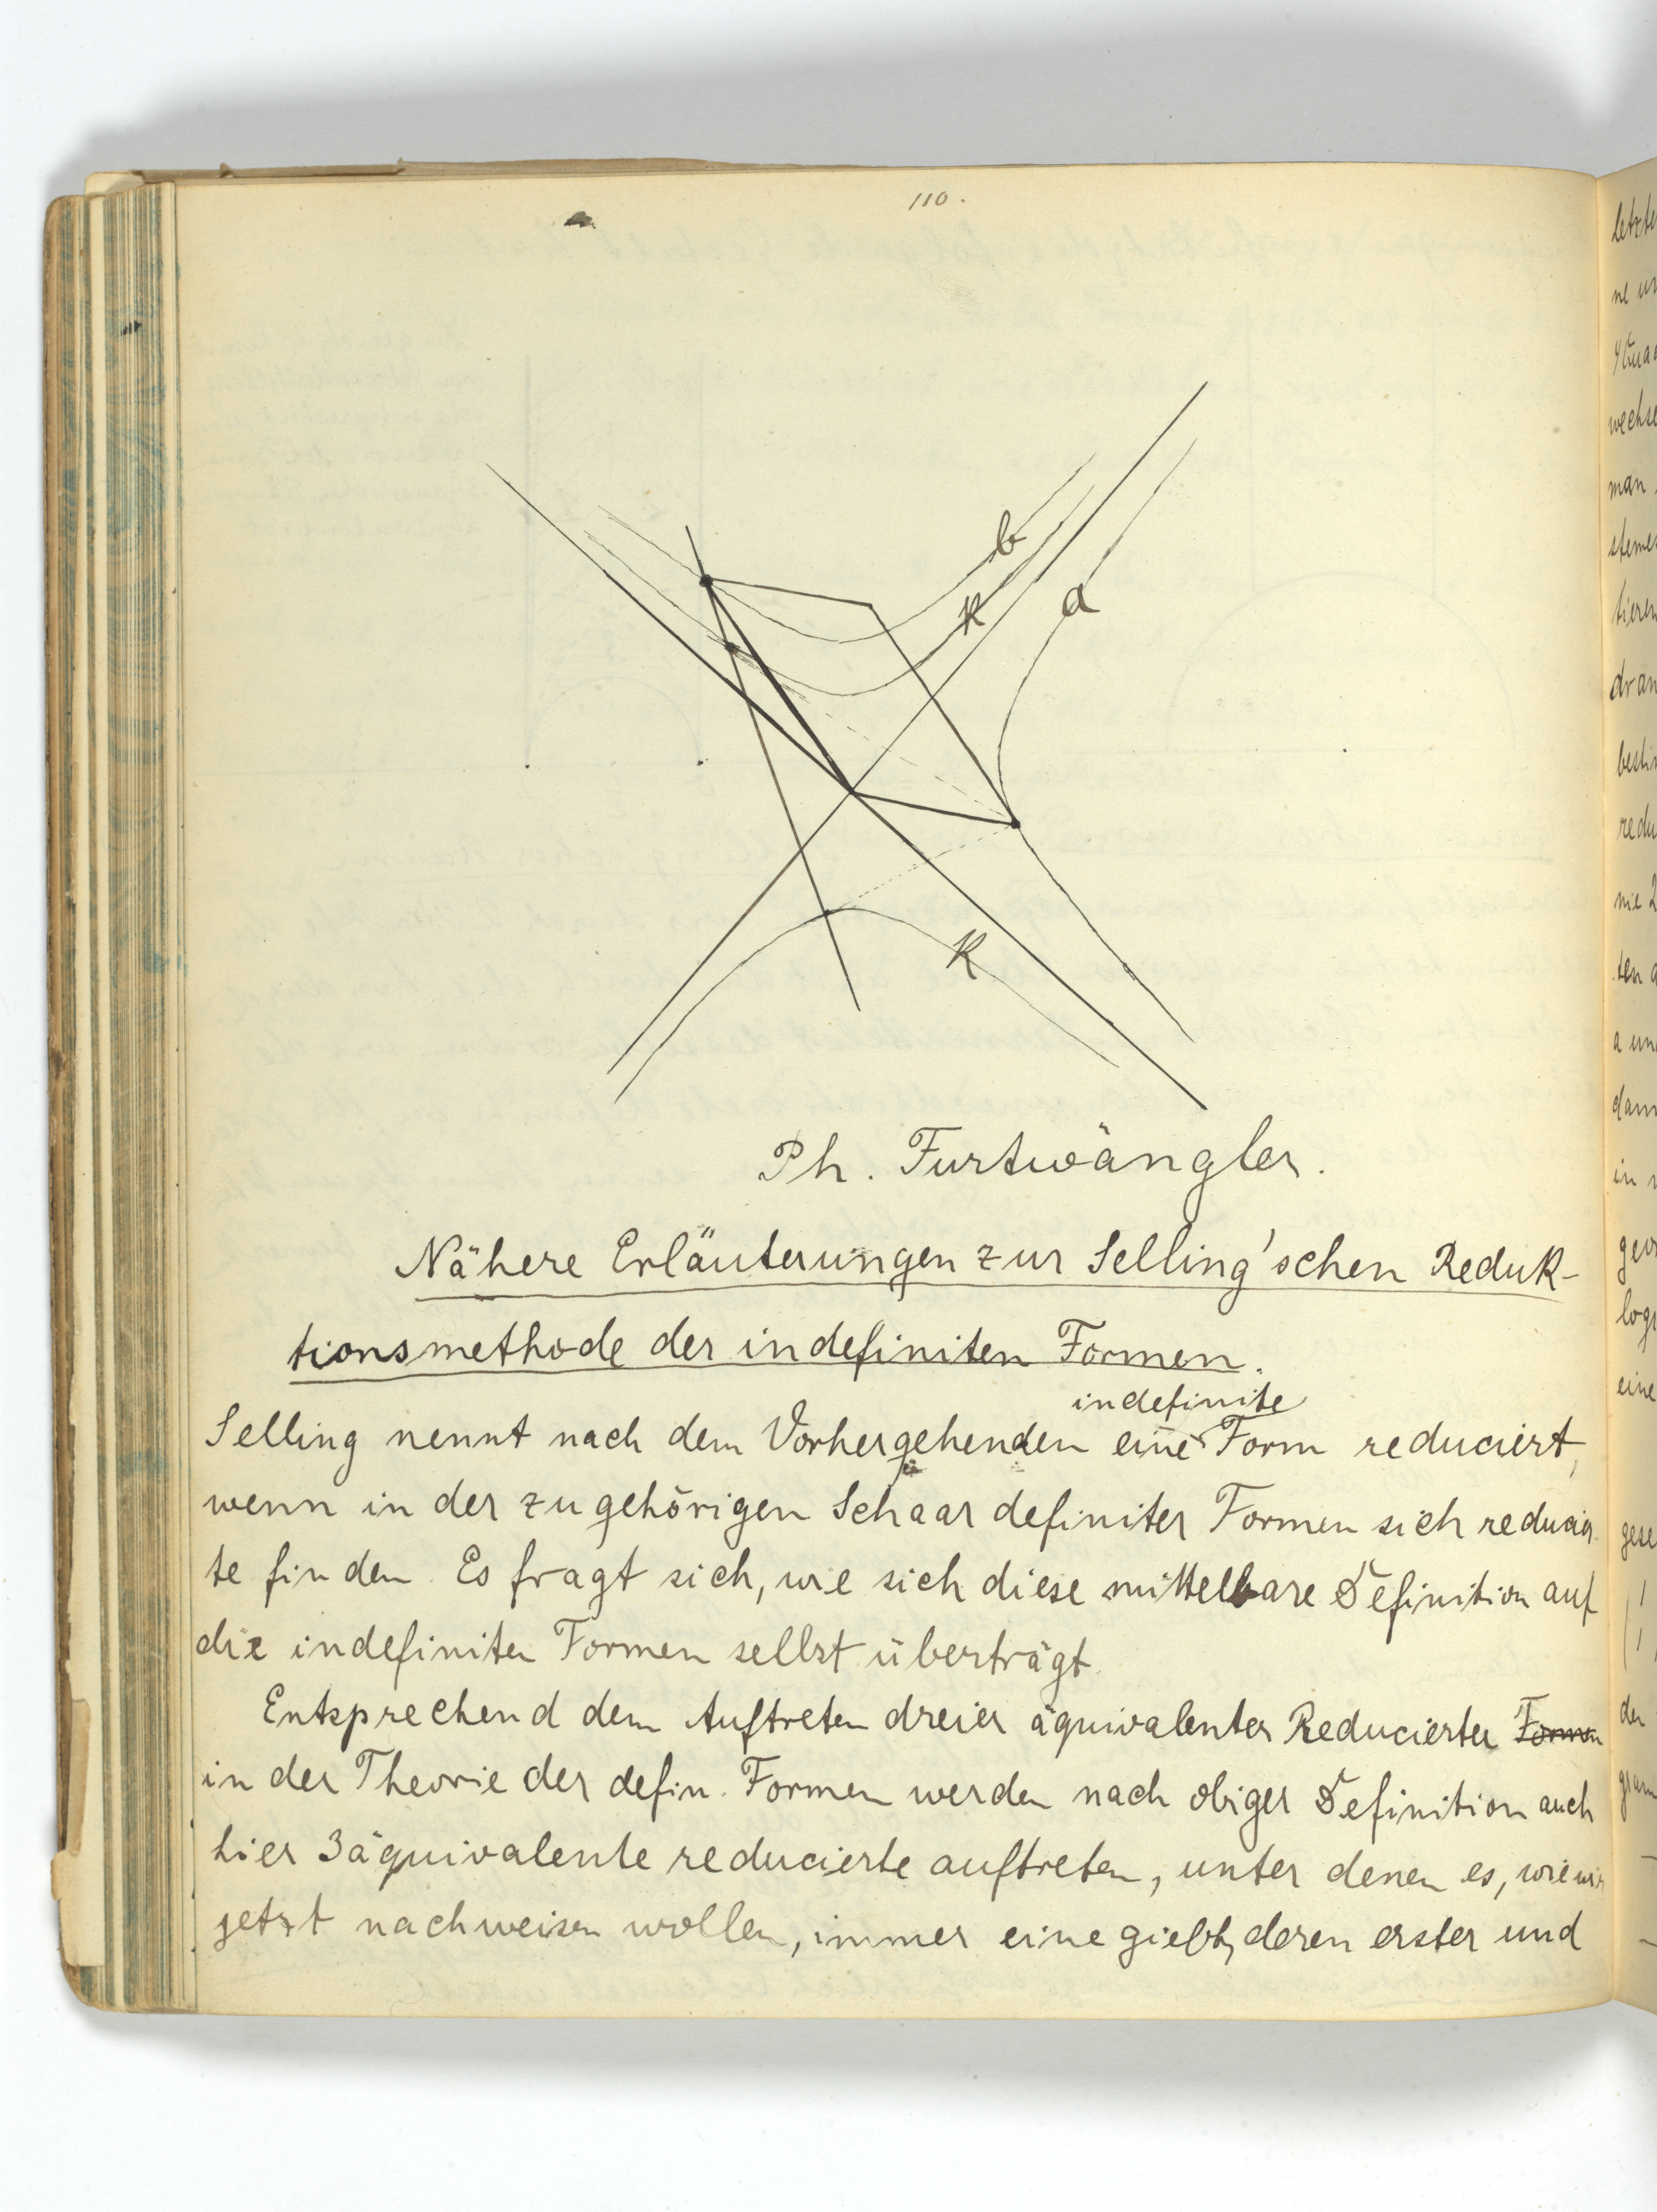 110.
b
K
a
K
Ph. Furtwängler.
Nähere Erläuterungen zur Selling'schen Reduk-
tionsmethode der indefiniten Formen.
indefinite
Selling nennt nach dem Vorhergehenden eine Form reduciert,
wenn in der zugehörigen Schaar definiter Formen sich reducier-
te finden. Es fragt sich, wie sich diese mittelbare Definition auf
die indefiniten Formen selbst überträgt.
Entsprechend dem Auftreten dreier äquivalenter Reducierter Formen
in der Theorie der defin. Formen werden nach obiger Definition auch
hier 3 äquivalente reducierte auftreten, unter denen es, wie wir
jetzt nachweisen wollen, immer eine giebt, deren erster und